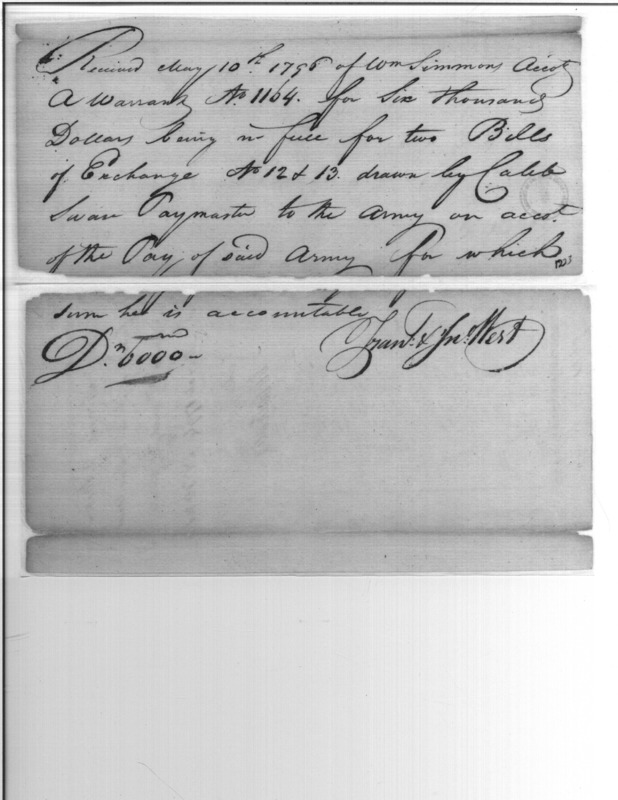 Received May 10th. 1796 of Wm Simmons Accot
A Warrant No 1164. for Six thousand
Dollars being in full for two Bills
of Exchange No 12 & 13. drawn by Caleb
Swan Paymaster to the Army on accot.
of the Pay of said Army for which
sum he is accountable
6000
Frans. & Jno. West